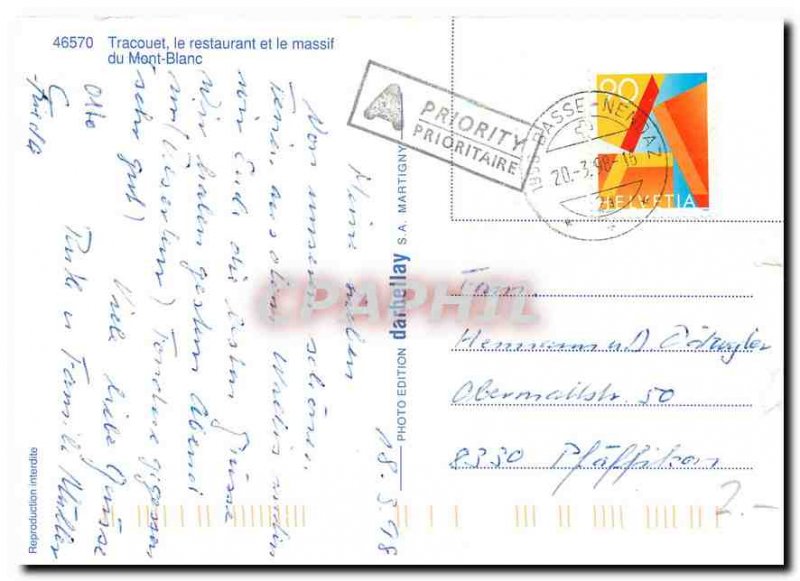 46570 Tracouet, le restaurant et le massif
du Mont-Blanc
A PRIORITY
PRIORITAIRE
BASSE-NENDAZ
20.-3.98-15
90
HELVETIA
18.3.98
Meine Lieben
Von unseren schönen
Ferien aus dem Wallis senden
wir Euch die besten Grüsse
Wir haben gestern Abend
Fondue gegessen
sehr gut)
Viele liebe Grüsse
Familie Müller
Otto
PHOTO EDITION darbellay S.A. MARTIGNY
Reproduction interdite
Fam.
Hermann u.
Obermattstr. 50
8330 Pfäffikon
2.-
CPAPHIL